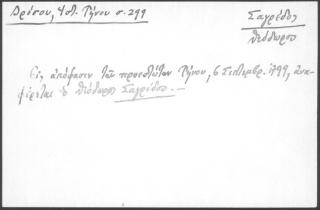 Δρόσου, Ἱστ. Τήνου σ. 299
Σαγρέδος
Θεόδωρος
Εἰς ἀπόφασιν τῶν προεστώτων Τήνου, 6 Σεπτεμβρ. 1799, ἀνα-
φέρεται ὁ Θεόδωρος Σαγρέδος. —